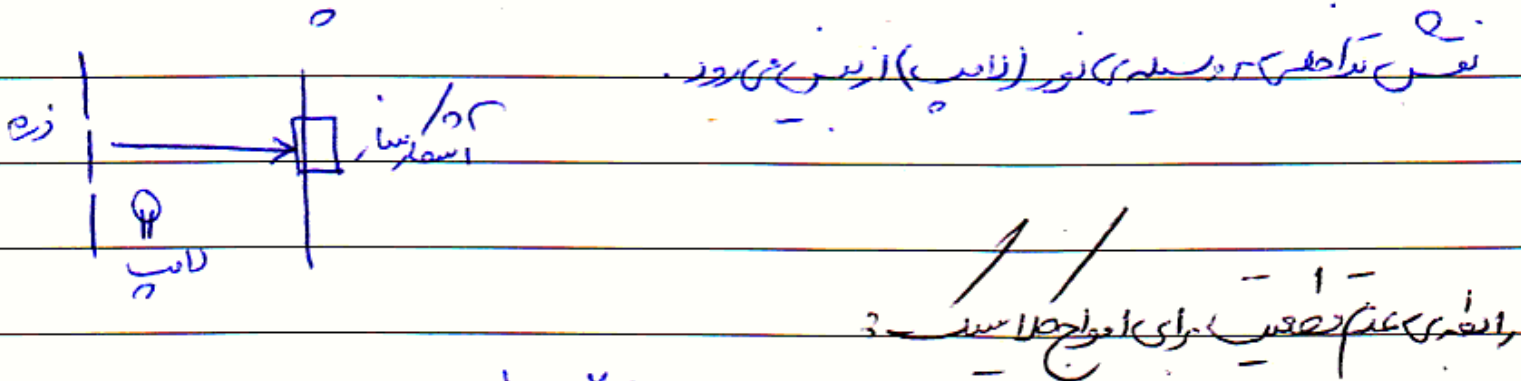 نقش تداخلی بوسیله‌ی نور (لامپ) از بین می‌رود.
ذره
آشکارساز
لامپ
رابطه‌ی عدم قطعیت برای امواج کلاسیک: